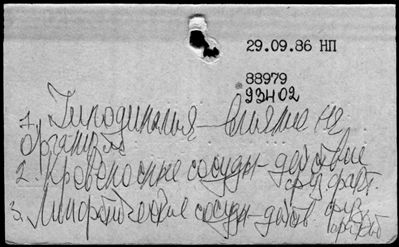 29.09.86 НП
88979
93Н02
1. Гиподинамия - влияние на
организм
2. Кровеносные сосуды - действие
физ. факт.
3. Лимфатические сосуды - действ.
физ.